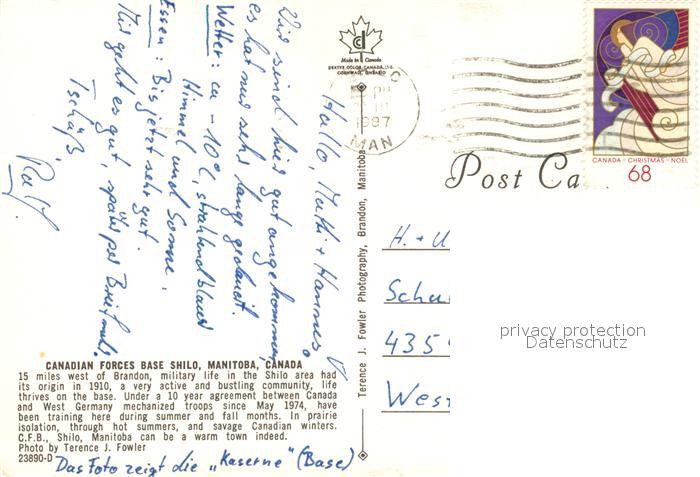 Hallo, Mutti + Hannes!
Wir sind hier gut angekommen,
es hat nur sehr lange gedauert.
Wetter: ca -10°C, strahlendblauer
Himmel und Sonne.
Essen: Bis jetzt sehr gut.
Mir geht es gut, später per Brief mehr.
Tschüß,
Ralf.
CANADIAN FORCES BASE SHILO, MANITOBA, CANADA
15 miles west of Brandon, military life in the Shilo area had
its origin in 1910, a very active and bustling community, life
thrives on the base. Under a 10 year agreement between Canada
and West Germany mechanized troops since May 1974, have
been training here during summer and fall months. In prairie
isolation, through hot summers, and savage Canadian winters.
C.F.B., Shilo, Manitoba can be a warm town indeed.
Photo by Terence J. Fowler
23890-D
Das Foto zeigt die „Kaserne" (Base)
Made in Canada
DEXTER COLOR CANADA LTD.
CORNWALL, ONTARIO
Terence J. Fowler Photography, Brandon, Manitoba
1997
MAN
CANADA · CHRISTMAS · NOËL
68
Post Ca
H. + U
Schu
435
West
privacy protection
Datenschutz